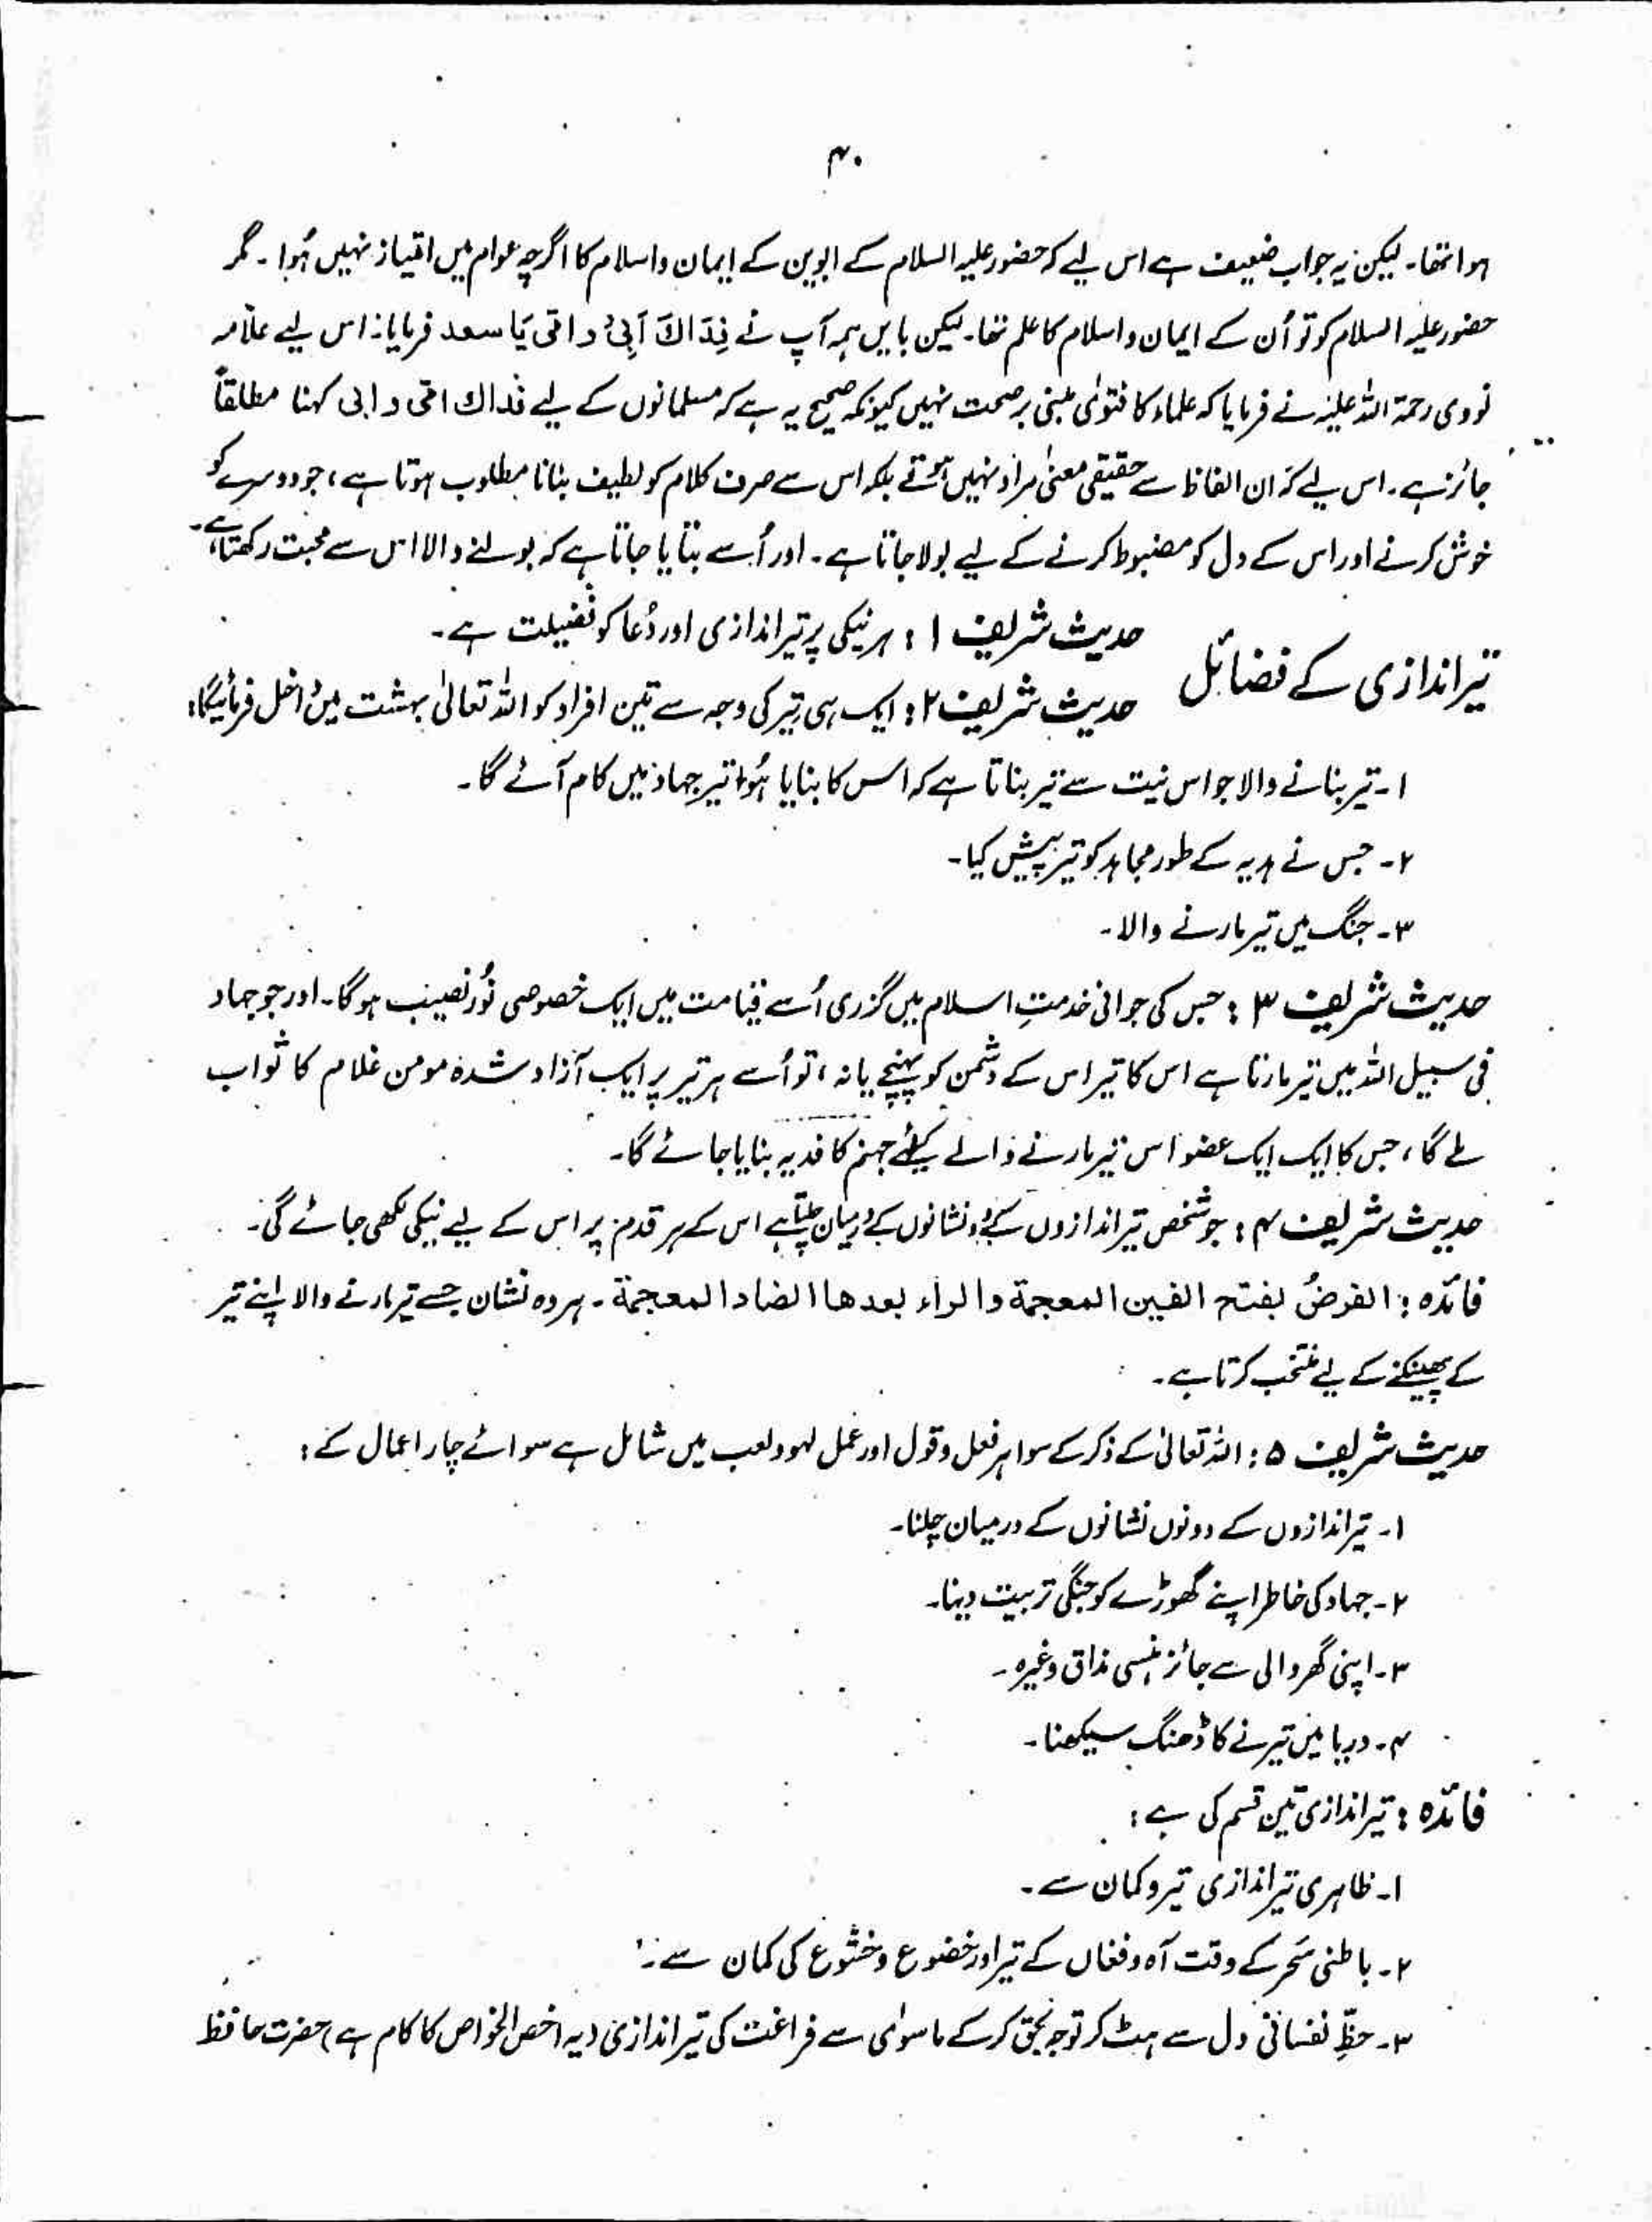 ۴۰
ہوا تھا۔ لیکن یہ جواب ضعیف ہے اس لیے کہ حضور علیہ السلام کے ابوین کے ایمان و اسلام کا اگرچہ عوام میں امتیاز نہیں ہُوا۔ مگر
حضور علیہ السلام کو تو اُن کے ایمان و اسلام کا علم تھا۔ لیکن بایں ہمہ آپ نے فِدَاكَ اَبِیْ و امی یَا سعد فرمایا۔ اس لیے علّامہ
نووی رحمۃ اللہ علیہ نے فرمایا کہ علماء کا فتویٰ مبنی برصحت نہیں کیونکہ صحیح یہ ہے کہ مسلمانوں کے لیے فداك امی و ابی کہنا مطلقاً
جائز ہے۔ اس لیے کہ ان الفاظ سے حقیقی معنیٰ مراد نہیں ہوتے بلکہ اس سے صرف کلام کو لطیف بنانا مطلوب ہوتا ہے، جو دوسرے کو
خوش کرنے اور اس کے دل کو مضبوط کرنے کے لیے بولا جاتا ہے۔ اور اُسے بتایا جاتا ہے کہ بولنے والا اس سے محبت رکھتا ہے۔
تیر اندازی کے فضائل
حدیث شریف ۱ : ہر نیکی پر تیراندازی اور دُعا کو فضیلت ہے۔
حدیث شریف ۲ : ایک ہی تیر کی وجہ سے تین افراد کو اللہ تعالیٰ بہشت میں داخل فرمائیگا :
۱۔ تیر بنانے والا جو اس نیت سے تیر بناتا ہے کہ اس کا بنایا ہُوا تیر جہاد میں کام آئے گا۔
۲۔ جس نے ہدیہ کے طور مجاہد کو تیر پیش کیا۔
۳۔ جنگ میں تیر مارنے والا۔
حدیث شریف ۳ : جس کی جوانی خدمتِ اسلام میں گزری اُسے قیامت میں ایک خصوصی نُور نصیب ہوگا۔ اور جو جہاد
فی سبیل اللہ میں تیر مارتا ہے اس کا تیر اس کے دشمن کو پہنچے یا نہ ، تو اُسے ہر تیر پر ایک آزاد شدہ مومن غلام کا ثواب
ملے گا ، جس کا ایک ایک عضو اس تیر مارنے والے کیلئے جہنم کا فدیہ بنایا جائے گا۔
حدیث شریف ۴ : جو شخص تیر اندازوں کے دو نشانوں کے درمیان چلتا ہے اس کے ہر قدم پر اس کے لیے نیکی لکھی جائے گی۔
فائدہ : الغرضُ بفتح الغین المعجمة والراء بعدها الضاد المعجمة۔ ہر وہ نشان جسے تیر مارنے والا اپنے تیر
کے پھینکنے کے لیے منتخب کرتا ہے۔
حدیث شریف ۵ : اللہ تعالیٰ کے ذکر کے سوا ہر فعل و قول اور عمل لہو ولعب میں شامل ہے سوائے چار اعمال کے :
۱۔ تیر اندازوں کے دونوں نشانوں کے درمیان چلنا۔
۲۔ جہاد کی خاطر اپنے گھوڑے کو جنگی تربیت دینا۔
۳۔ اپنی گھر والی سے جائز ہنسی مذاق وغیرہ۔
۴۔ دریا میں تیرنے کا ڈھنگ سیکھنا۔
فائدہ : تیر اندازی تین قسم کی ہے :
۱۔ ظاہری تیر اندازی تیر و کمان سے۔
۲۔ باطنی سَحر کے وقت آہ و فغاں کے تیر اور خضوع و خشوع کی کمان سے۔
۳۔ حظِّ نفسانی دل سے ہٹ کر توجہ بحق کرکے ماسوٰی سے فراغت کی تیر اندازی (یہ اخص الخواص کا کام ہے) حضرت حافظ